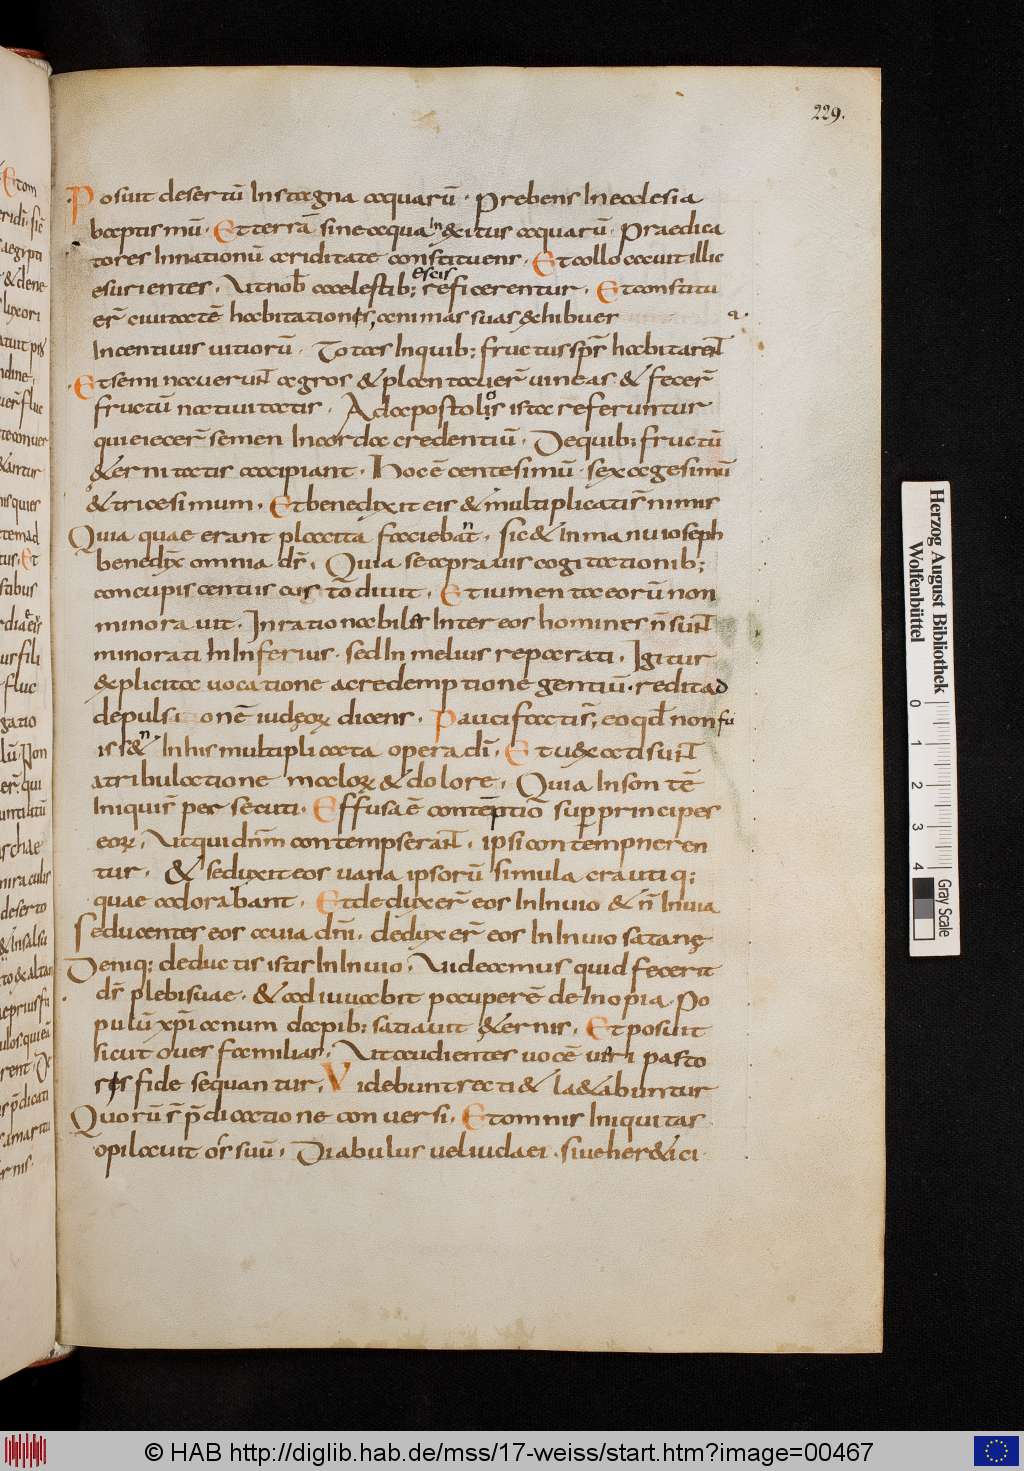 229.
Posuit desertū In stagna aquarū · prebens In ecclesia
baptismū · Et terrā sine aqua In exitus aquarū · praedica
tores In nationū ariditate constituens · Et collocauit illic
esurientes · Ut nob caelestib; escis reficerentur · Et constitu
er̄ ciuitatē habitationis, animas suas exhibuer
Incentiuis uitiorū · Totas In quib; fructus sp̄s habitaren̄t
Et seminauerunt agros & plantauer̄ uineas · & fecer̄
fructū natiuitatis · Ad apostolos ista referuntur
qui eiecer̄ semen In corda credentiū · De quib; fructū
&ernitatis accipiant · Hoc ē centesimū · sexagesimū
& tricesimum · Et benedixit eis & multiplicati s̄ nimis
Quia quae erant placita faciebant · sic & In manu ioseph
benedix̄ omnia d̄s · Quia se a prauis cogitationib;
concupiscentiis custodiuit · Et iumenta eorū non
minorauit · Inrationabiles Inter eos homines n̄ sunt
minorati In Inferius · sed In melius reparati · Igitur
explicita uocatione ac redemptione gentiū · redit ad
depulsionē iudeorꝝ dicens · Pauci facti s̄, eo qd̄ non fu
issent In his multiplicata opera dī · Et uexati sunt
a tribulatione malorꝝ & dolore · Quia Inson tē
Iniquis persecuti · Effusa ē contēptio super principes
eorꝝ · Ut qui dn̄m contempserant · ipsi contempneren
tur · & seduxit eos uana ipsorū simulacra utiq;
quae adorabant · Et deduxer̄ eos In Inuio & n̄ In uia
Seducentes eos a uia dn̄i · deduxer̄ eos In Inuio satanę
Deniq; deductis istis In Inuio · Uideamus quid fecerit
d̄s plebi suae · & adiuuabit pauperē de Inopia · Po
pulū xp̄ianum dapib; satiauit &ernis · Et posuit
sicut oues familias · Ut audientes uocē ueri pasto
ris fide sequantur · Videbunt recti & la&abuntur
Quorū s̄ p̄dicatione conuersi · Et omnis Iniquitas
opilauit os suū · Diabulus uel iudaei · siue her&ici
Herzog August Bibliothek
Wolfenbüttel
0 1 2 3 4
Gray Scale
© HAB http://diglib.hab.de/mss/17-weiss/start.htm?image=00467